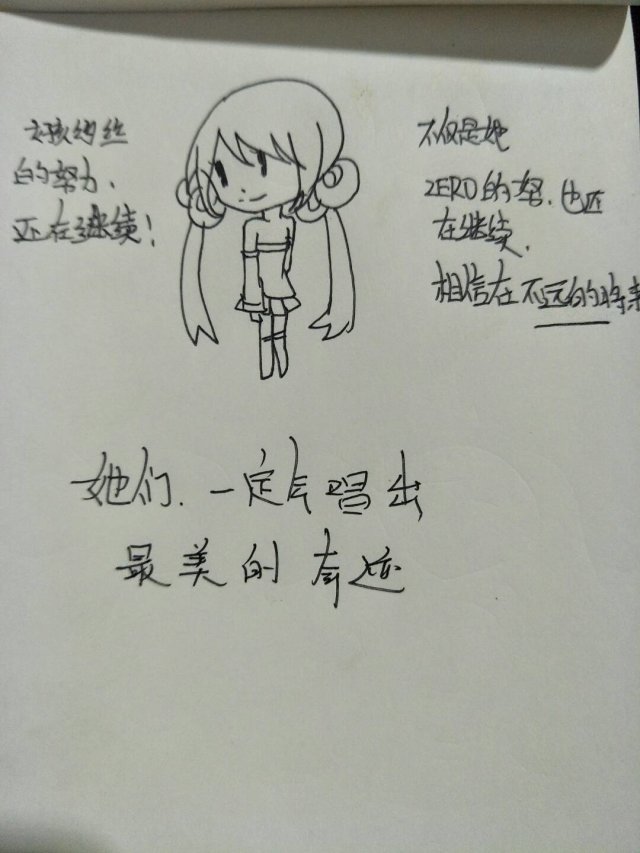 的努力、
还在继续!
不仅是她
ZERO的努、也还
在继续、
相信在不远的将来
她们、一定会唱出
最美的奇迹